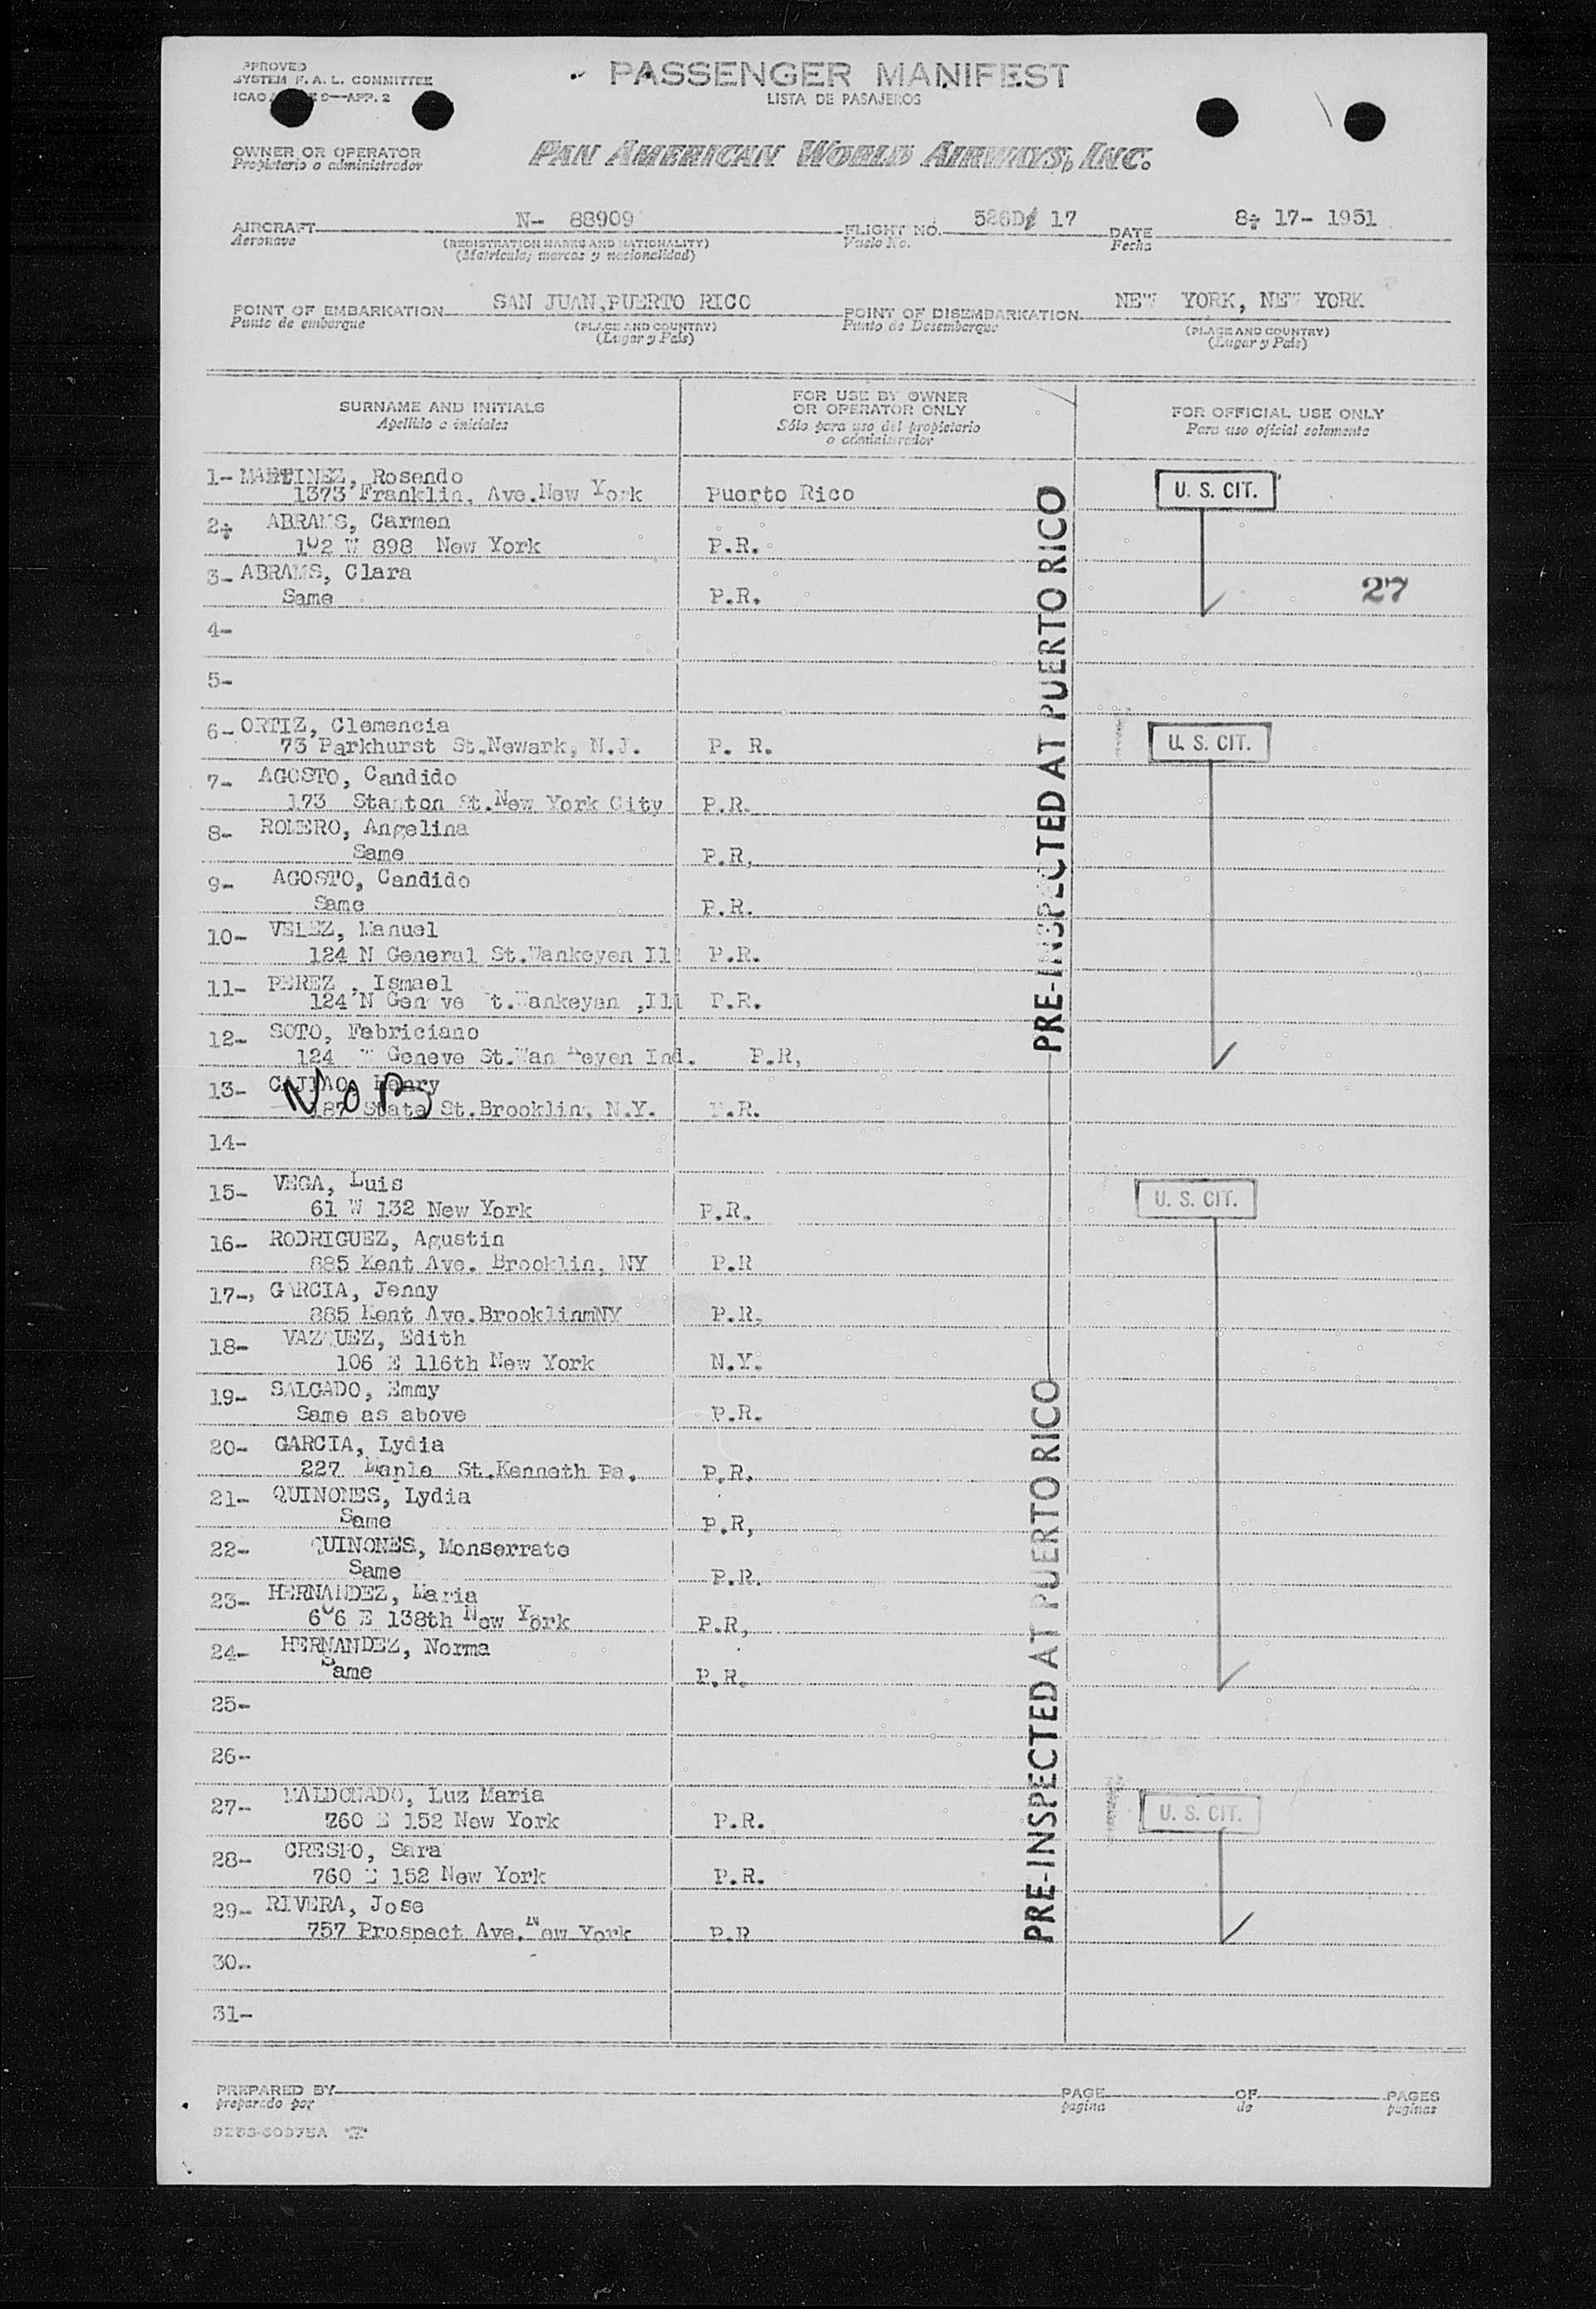 APPROVED
SYSTEM F. A. L. COMMITTEE
ICAO 9—APP. 2
PASSENGER MANIFEST
LISTA DE PASAJEROS
OWNER OR OPERATOR
Propietario o administrador
PAN AMERICAN WORLD AIRWAYS, INC.
AIRCRAFT N- 88909 FLIGHT NO. 526D/ 17 DATE 8- 17- 1951
Aeronave (REGISTRATION MARKS AND NATIONALITY) Vuelo No. Fecha
(Matricula; marcas y nacionalidad)
POINT OF EMBARKATION SAN JUAN,PUERTO RICO POINT OF DISEMBARKATION NEW YORK, NEW YORK
Punto de embarque (PLACE AND COUNTRY) Punto de Desembarque (PLACE AND COUNTRY)
(Lugar y País) (Lugar y País)
SURNAME AND INITIALS
Apellido e iniciales
FOR USE BY OWNER
OR OPERATOR ONLY
Sólo para uso del propietario
o administrador
FOR OFFICIAL USE ONLY
Para uso oficial solamente
1- MARTINEZ, Rosendo
1373 Franklin, Ave.New York Puerto Rico U. S. CIT.
2- ABRAMS, Carmen
102 W 898 New York P.R.
3- ABRAMS, Clara
Same P.R. 27
4-
5-
6- ORTIZ, Clemencia
73 Parkhurst St.Newark, N.J. P. R. U. S. CIT.
7- AGOSTO, Candido
173 Stanton St.New York City P.R.
8- ROMERO, Angelina
Same P.R,
9- AGOSTO, Candido
Same P.R.
10- VELEZ, Manuel
124 N General St.Wankeyen Ill P.R.
11- PEREZ , Ismael
124 N Gen ve t.Wankeyen ,Ill P.R.
12- SOTO, Fabriciano
124 W Geneve St.Wan keyen Ind. P.R,
13- Henry
NOB
187 State St.Brooklin, N.Y. P.R.
14-
15- VEGA, Luis
61 W 132 New York P.R. U. S. CIT.
16- RODRIGUEZ, Agustin
885 Kent Ave. Brooklin, NY P.R
17-, GARCIA, Jenny
885 Kent Ave.BrooklinmNY P.R.
18- VAZQUEZ, Edith
106 E 116th New York N.Y.
19- SALGADO, Emmy
Same as above P.R.
20- GARCIA, Lydia
227 Maple St.Kenneth Pa. P.R.
21- QUINONES, Lydia
Same P.R,
22- QUINONES, Monserrate
Same P.R.
23- HERNANDEZ, Maria
606 E 138th New York P.R,
24- HERNANDEZ, Norma
Same P.R.
25-
26-
27- MALDONADO, Luz Maria
760 E 152 New York P.R. U. S. CIT.
28- CRESPO, Sara
760 E 152 New York P.R.
29- RIVERA, Jose
757 Prospect Ave. New York P.R
30-
31-
PRE-INSPECTED AT PUERTO RICO
PRE-INSPECTED AT PUERTO RICO
PREPARED BY PAGE OF PAGES
preparado por pagina de paginas